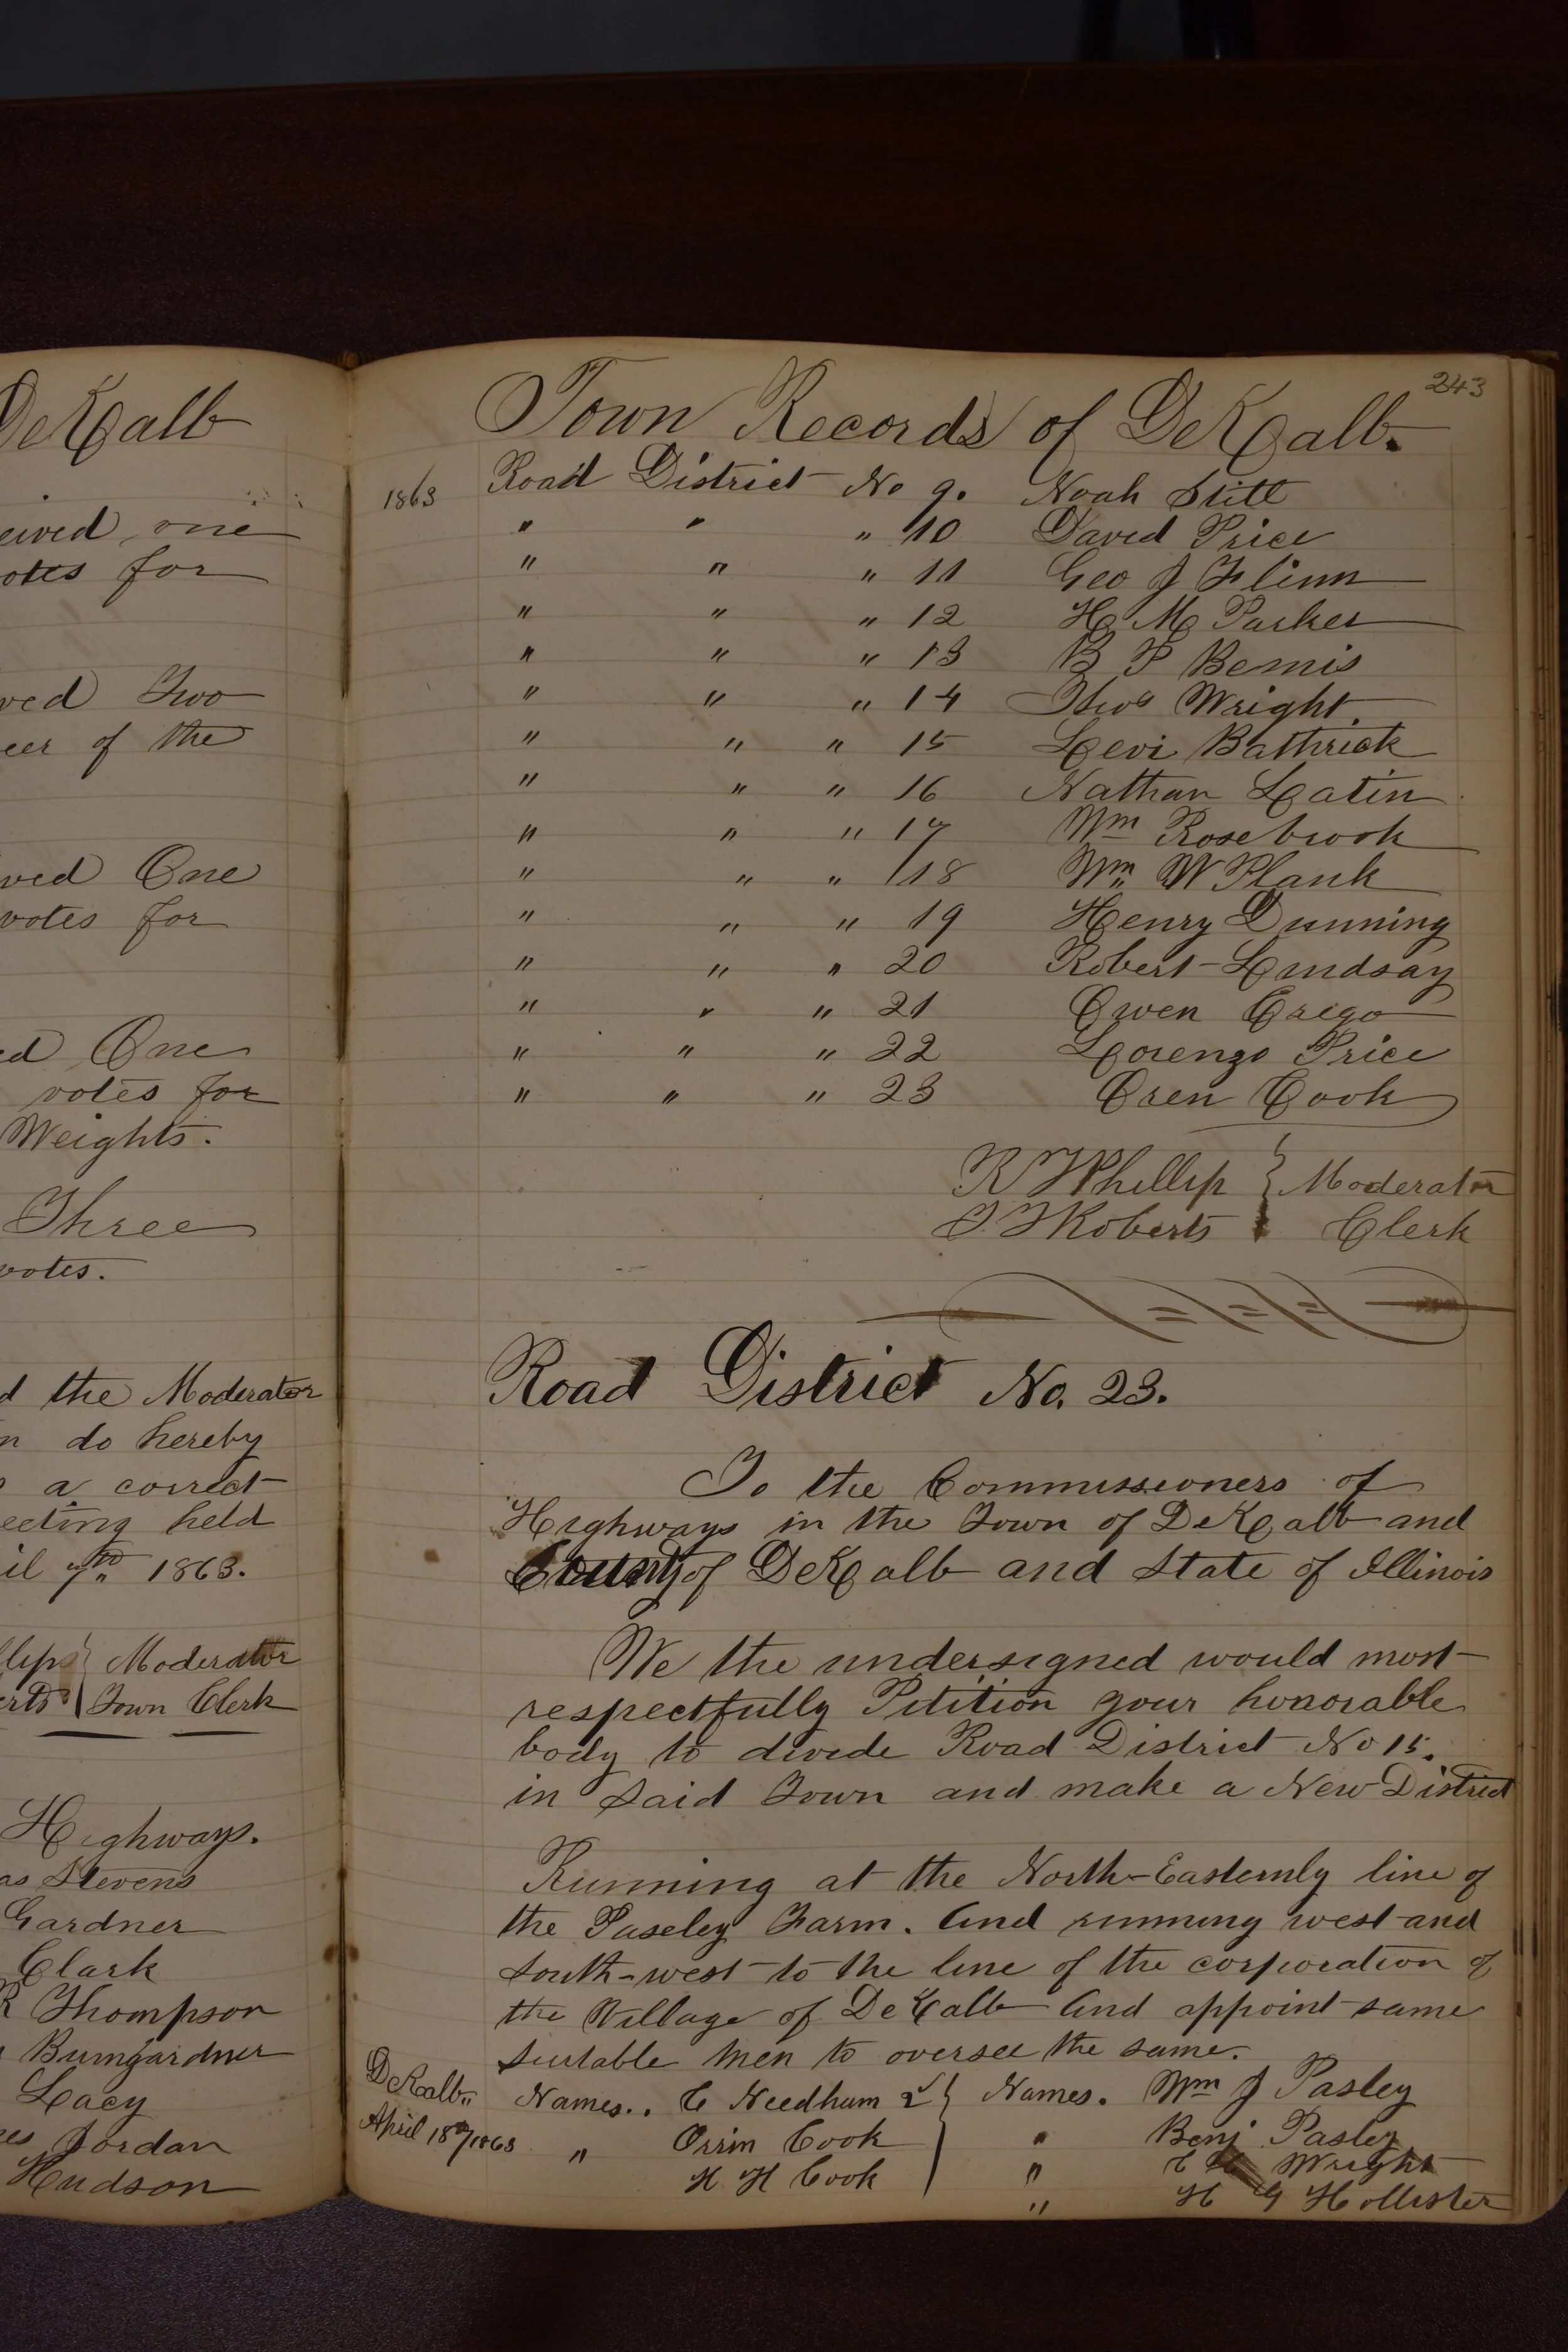 DeKalb
eived one
otes for
ved Two
eer of the
ved One
votes for
ed One
votes for
Weights.
Three
votes.
d the Moderator
n do hereby
a correct
eeting held
il 7th 1863.
llips } Moderator
erts } Town Clerk
Highways.
as Stevens
Gardner
Clark
R Thompson
Bumgardner
Lacy
es Jordan
Hudson
243
Town Records of DeKalb.
1863 Road District No 9. Noah Stitt
" " " 10 David Price
" " " 11 Geo J Flinn
" " " 12 H M Parker
" " " 13 B F Bemis
" " " 14 Thos Wright
" " " 15 Levi Bathrick
" " " 16 Nathan Latin
" " " 17 Wm Rosebrook
" " " 18 Wm W Plank
" " " 19 Henry Dunning
" " " 20 Robert Lindsay
" " " 21 Owen Crego
" " " 22 Lorenzo Price
" " " 23 Oren Cook
R T Phillip } Moderator
Roberts } Clerk
Road District No. 23.
To the Commissioners of
Highways in the Town of DeKalb and
County of DeKalb and State of Illinois
We the undersigned would most
respectfully Petition your honorable
body to divide Road District No 15.
in said Town and make a New District
Running at the North-Easternly line of
the Paseley Farm. And running west and
south-west to the line of the corporation of
the Village of DeKalb And appoint same
suitable men to oversee the same.
DeKalb.. Names.. C Needham } Names. Wm J Pasley
April 18th/1863 " Orrin Cook " Benj Pasley
H H Cook " C Wright
" H G Hollister